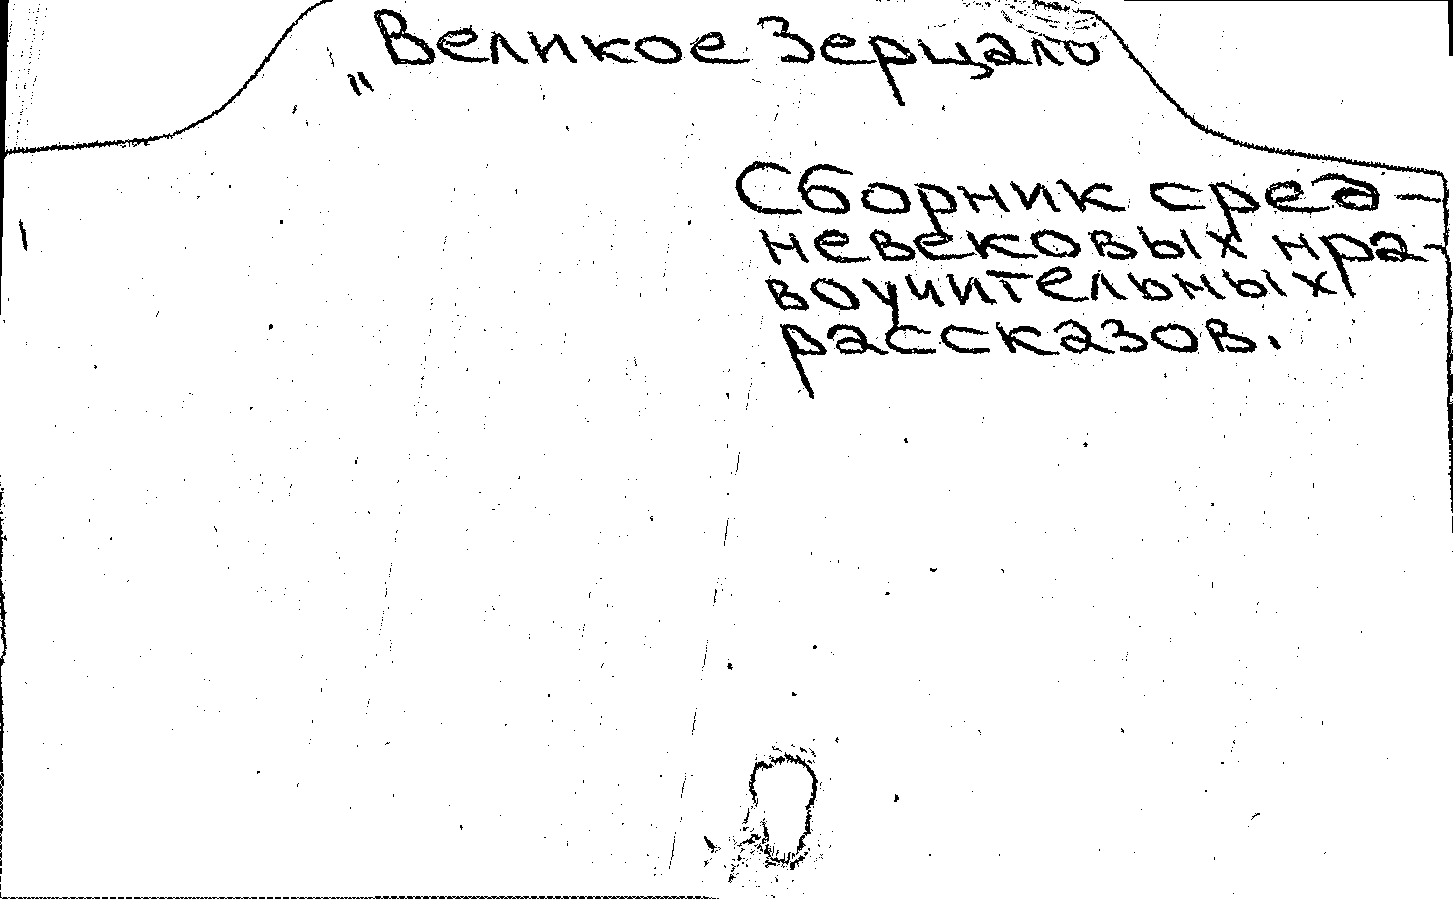 „Великое Зерцало
Сборник сред-
невековых нра-
воучительных
рассказов.